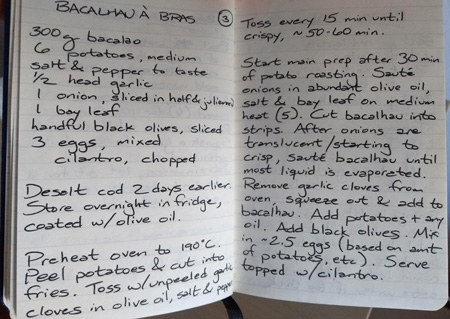 BACALHAU À BRAS
3
300g bacalao
6 potatoes, medium
salt & pepper to taste
1/2 head garlic
1 onion, sliced in half & julienned
1 bay leaf
handful black olives, sliced
3 eggs, mixed
cilantro, chopped
Desalt cod 2 days earlier.
Store overnight in fridge,
coated w/olive oil.
Preheat oven to 190°C.
Peel potatoes & cut into
fries. Toss w/unpeeled garlic
cloves in olive oil, salt & pepper
Toss every 15 min until
crispy, ~50-60 min.
Start main prep after 30 min
of potato roasting. Sauté
onions in abundant olive oil,
salt & bay leaf on medium
heat (5). Cut bacalhau into
strips. After onions are
translucent/starting to
crisp, sauté bacalhau until
most liquid is evaporated.
Remove garlic cloves from
oven, squeeze out & add to
bacalhau. Add potatoes + any
oil. Add black olives. Mix
in ~2.5 eggs (based on amt
of potatoes, etc). Serve
topped w/cilantro.